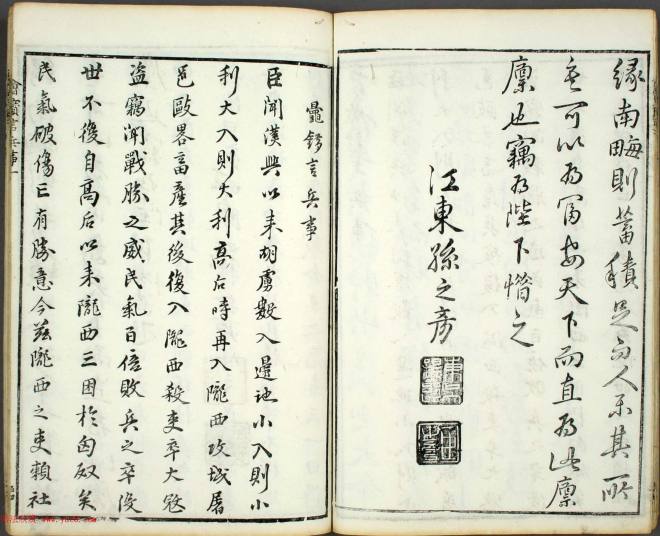 緣南畮則蓄積足而人樂其所
矣可以為富安天下而直為此廩
廩也竊為陛下惜之
江東孫之彥
鼂錯言兵事
臣聞漢興以來胡虜數入邊地小入則小
利大入則大利高后時再入隴西攻城屠
邑歐畧畜產其後復入隴西殺吏卒大寇
盜竊聞戰勝之威民氣百倍敗兵之卒没
世不復自高后以來隴西三困於匈奴矣
民氣破傷亡有勝意今茲隴西之吏賴社